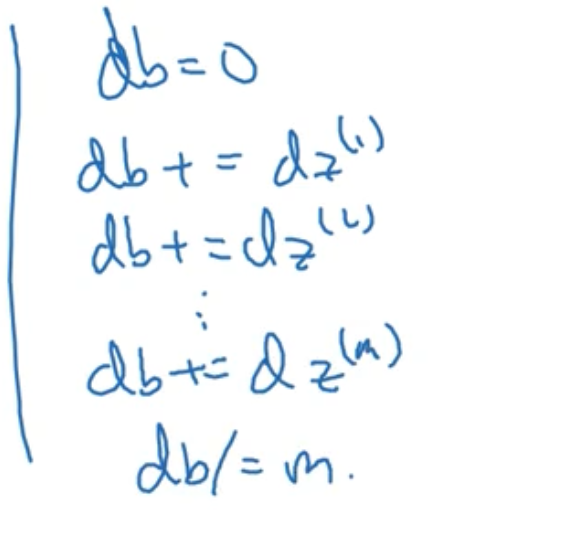 db = 0
db += dz^(1)
db += dz^(2)
⋮
db += dz^(m)
db /= m.